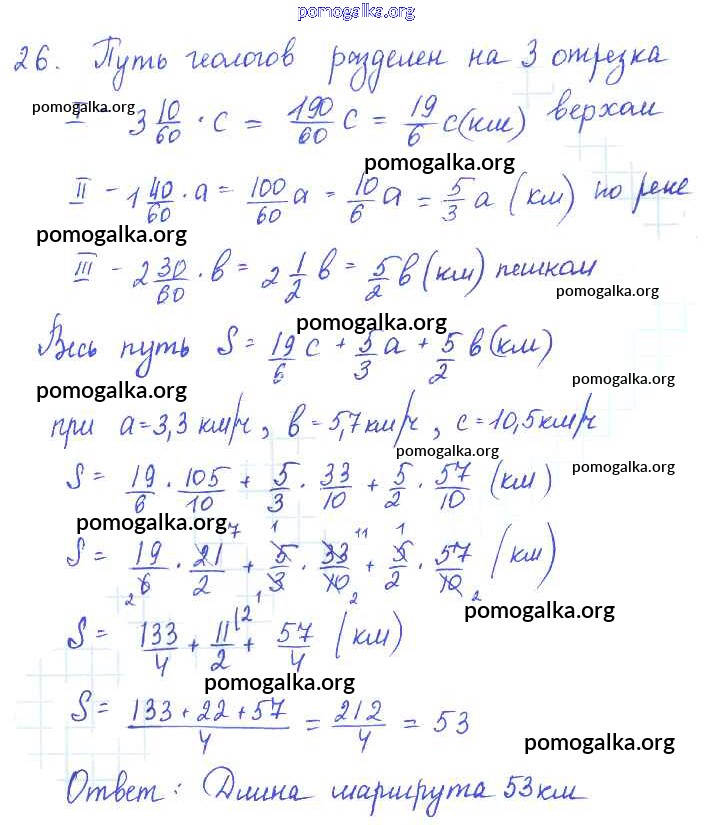 pomogalka.org
26. Путь геологов разделен на 3 отрезка
pomogalka.org
I - 3 10/60 · c = 190/60 c = 19/6 c (км) верхом
pomogalka.org
II - 1 40/60 · a = 100/60 a = 10/6 a = 5/3 a (км) по реке
pomogalka.org
III - 2 30/60 · в = 2 1/2 в = 5/2 в (км) пешком
pomogalka.org
pomogalka.org
Весь путь S = 19/6 c + 5/3 a + 5/2 в (км)
pomogalka.org
pomogalka.org
при a = 3,3 км/ч, в = 5,7 км/ч, c = 10,5 км/ч
pomogalka.org
pomogalka.org
S = 19/6 · 105/10 + 5/3 · 33/10 + 5/2 · 57/10 (км)
pomogalka.org
7 1 11 1
S = 19/6 · 21/2 + 5/3 · 33/10 + 5/2 · 57/10 (км)
2 1 2 2
pomogalka.org
S = 133/4 + 11/2 (2 + 57/4 (км)
pomogalka.org
S = 133 + 22 + 57/4 = 212/4 = 53
pomogalka.org
Ответ: Длина маршрута 53 км